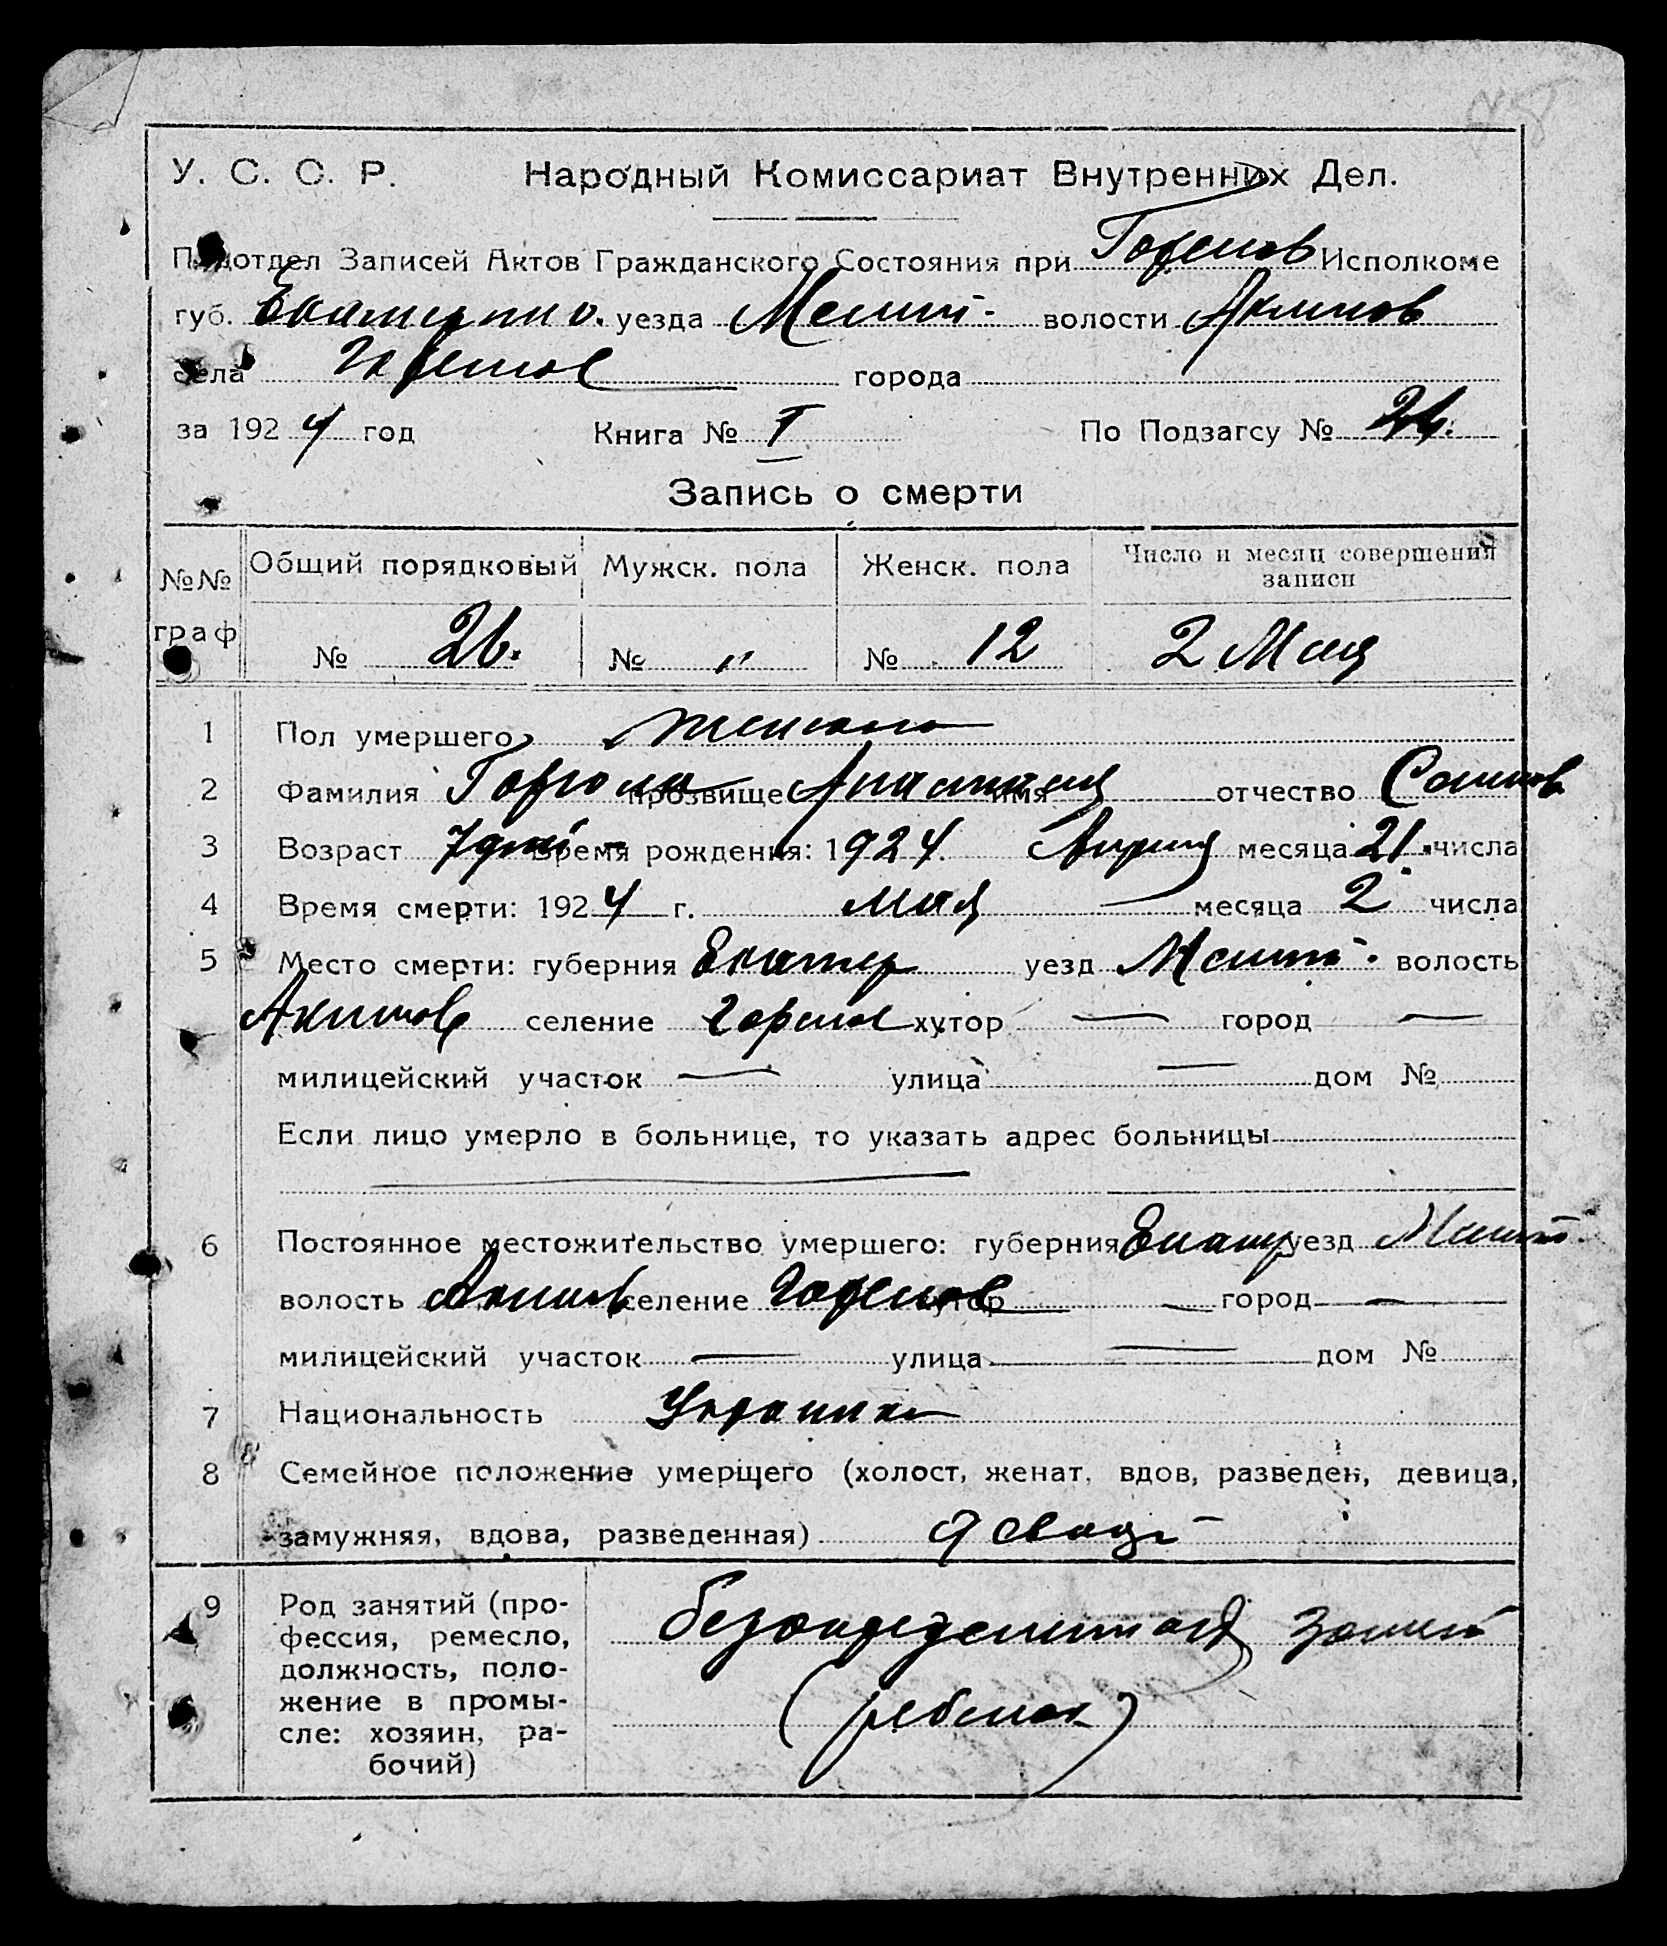 У. С. С. Р. Народный Комиссариат Внутренних Дел.
Подотдел Записей Актов Гражданского Состояния при Исполкоме
губ. Екатерино. уезда Мелит. волости Акимов
села города
за 1924 год Книга № I По Подзагсу № 26.
Запись о смерти
№№ граф Общий порядковый Мужск. пола Женск. пола Число и месяц совершения записи
№ 26. № " № 12 2 Мая
1 Пол умершего женского
2 Фамилия прозвище Анастасия имя отчество
3 Возраст 7 дней Время рождения: 1924. Апреля месяца 21 числа
4 Время смерти: 1924 г. мая месяца 2 числа
5 Место смерти: губерния Екатер уезд Мелит. волость
Акимов селение хутор — город —
милицейский участок — улица — дом №
Если лицо умерло в больнице, то указать адрес больницы
6 Постоянное местожительство умершего: губерния Екатер уезд Мелит.
волость Акимов селение хутор — город —
милицейский участок — улица — дом №
7 Национальность Украинка
8 Семейное положение умершего (холост, женат, вдов, разведен, девица,
замужняя, вдова, разведенная)
9 Род занятий (про-
фессия, ремесло,
должность, поло-
жение в промы-
сле: хозяин, ра-
бочий)
(ребенок)